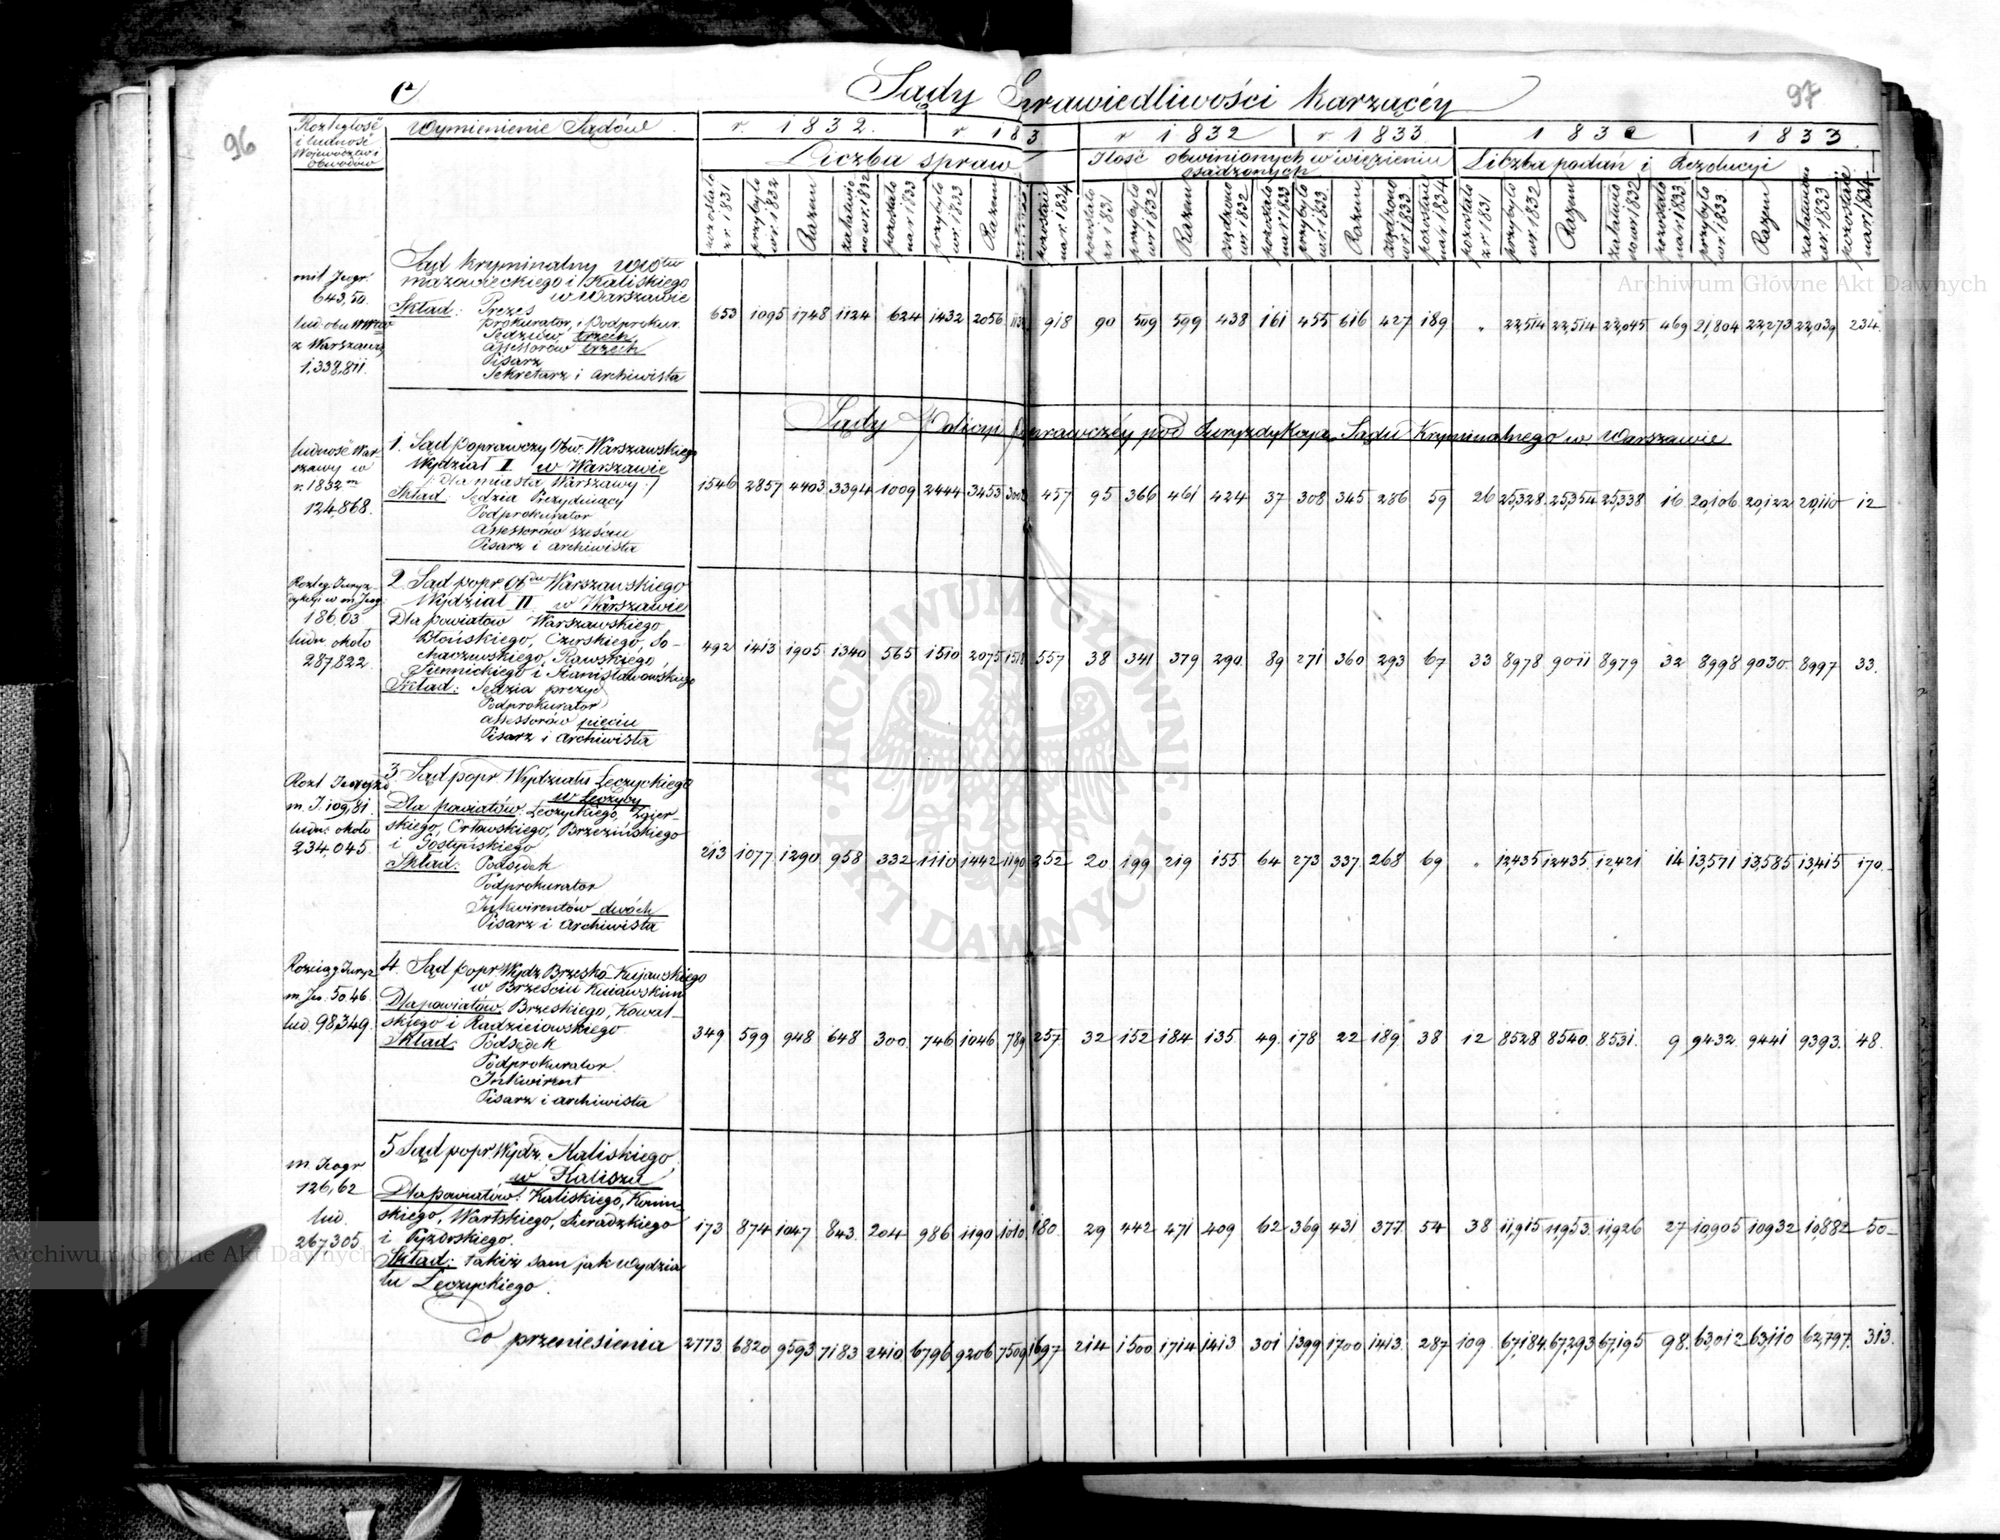 C
Sądy Sprawiedliwości Karzącéy
96
97
Rozległość i ludność Województw i Obwodów
Wymienienie Sądów
r. 1832. r 183 r 1832 r 1833 1832 1833
Liczba spraw Ilość obwinionych w więzieniu osadzonych Liczba podań i Rezolucyi
pozostało z r. 1831 przybyło w r. 1832 Razem załatwio no w r. 1832 pozostało na r. 1833 przybyło w r. 1833 Razem pozostaie na r. 1834 pozostało z r. 1831 przybyło w r. 1832 Razem osądzono w r. 1832 pozostało na r. 1833 przybyło w r. 1833 Razem osądzono w r. 1833 pozostaie na r. 1834 pozostało z r. 1831 przybyło w r. 1832 Razem załatwio no w r. 1832 pozostało na r. 1833 przybyło w r. 1833 Razem załatwiono w r. 1833 pozostaie na r. 1834
Sąd Kryminalny Wdztw
mazowieckiego i Kaliskiego
w Warszawie
Skład: Prezes
Prokurator, i Podprokur.
Sędziów trzech
Assessorów trzech
Pisarz
Sekretarz i Archiwista
mil Jeogr.
643,50.
lud. obu WWdztw
z Warszawą
1,338,811.
653 1095 1748 1124 624 1432 2056 1138 918 90 509 599 438 161 455 616 427 189 " 22,514 22,514 22,045 469 21,804 22,273 22,039 234.
Sądy Policyi Poprawczéy pod Juryzdykcyą Sądu Kryminalnego w Warszawie
ludność War
szawy w
r. 1832 m
124,868.
1. Sąd Poprawczy Obw. Warszawskiego
Wydział I w Warszawie
/: Dla miasta Warszawy :/
Skład: Sędzia Prezyduiący
Podprokurator
Assessorów sześciu
Pisarz i Archiwista
1546 2857 4403 3394 1009 2444 3453 457 95 366 461 424 37 308 345 286 59 26 25,328 25,354 25,338 16 20,106 20,122 20,110 12
Rozleg. Juryz
dykcyi w m. Jeog.
186,03
ludn. około
287,822
2. Sąd popr Obdu Warszawskiego
Wydział II w Warszawie
Dla powiatów Warszawskiego
Błońskiego, Czerskiego, So-
chaczewskiego, Rawskiego,
Siennickiego i Stanisławowskiego
Skład: Sędzia prezyd
Podprokurator
Assessorów pięciu
Pisarz i Archiwista
492 1413 1905 1340 565 1510 2075 1518 557 38 341 379 290 89 271 360 293 67 33 8978 9011 8979 32 8998 9030 8997 33.
Rozl Juryzd
m. J. 109,81.
ludn: około
234,045
3. Sąd popr Wydziału Łęczyckiego
w Łęczycy
Dla powiatów Łęczyckiego, Zgier-
skiego, Orłowskiego, Brzezińskiego
i Gostyńskiego
Skład: Podsędek
Podprokurator
Inkwirentów dwóch
Pisarz i Archiwista
213 1077 1290 958 332 1110 1442 1190 252 20 199 219 155 64 273 337 268 69 " 12,435 12,435 12,421 14 13,571 13,585 13,415 170.
Rozciąg Juryz
m. Je. 50,46.
lud. 98,349.
4. Sąd popr Wydz Brzesko-Kujawskiego
w Brześciu Kuiawskim
Dla powiatów: Brzeskiego, Kowal-
skiego i Radzieiowskiego
Skład: Podsędek
Podprokurator
Inkwirent
Pisarz i Archiwista
349 599 948 648 300 746 1046 789 257 32 152 184 135 49 178 22 189 38 12 8528 8540 8531 9 9432 9441 9393 48.
m. Jeogr
126,62
lud.
267,305
5 Sąd popr. Wydz. Kaliskiego
w Kaliszu
Dla powiatów: Kaliskiego, Konin-
skiego, Wartskiego, Sieradzkiego
i Pyzdrskiego.
Skład: takiż sam jak Wydzia
łu Łęczyckiego.
173 874 1047 843 204 986 1190 1010 180 29 442 471 409 62 369 431 377 54 38 11,915 11,953 11,926 27 10,905 10,932 10,882 50
Do przeniesienia 2773 6820 9593 7183 2410 6796 9206 7509 1697 214 1500 1714 1413 301 1399 1700 1413 287 109 67,184 67,293 67,195 98 63,012 63,110 62,797 313.
ARCHIWUM GŁÓWNE AKT DAWNYCH
Archiwum Główne Akt Dawnych
Archiwum Główne Akt Dawnych